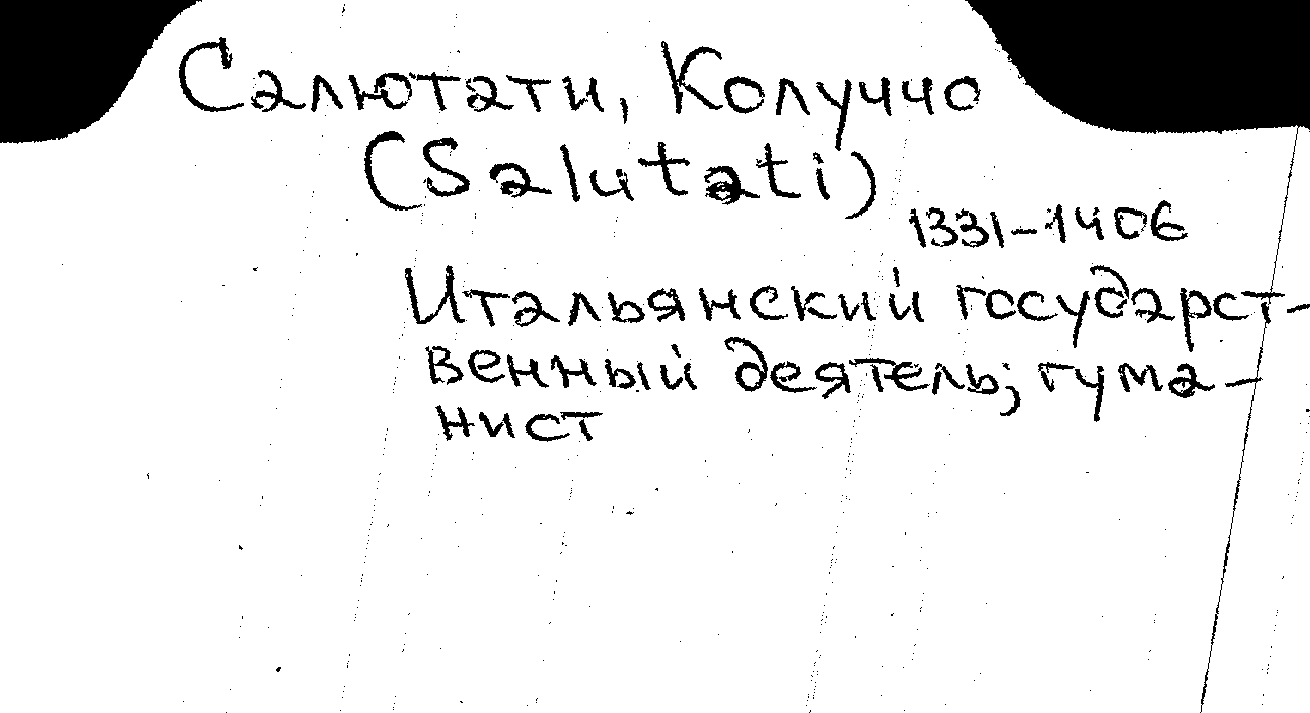 Салютати, Колуччо
(Salutati)
1331-1406
Итальянский государст-
венный деятель; гума-
нист